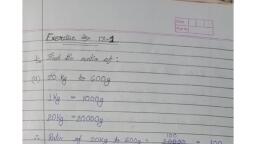 Exercise 13.1
1. Find the ratio of:
(i) 20 Kg to 600g
1Kg = 1000g
20Kg = 20000g
∴ Ratio of 20Kg to 600g = 20000 = 100